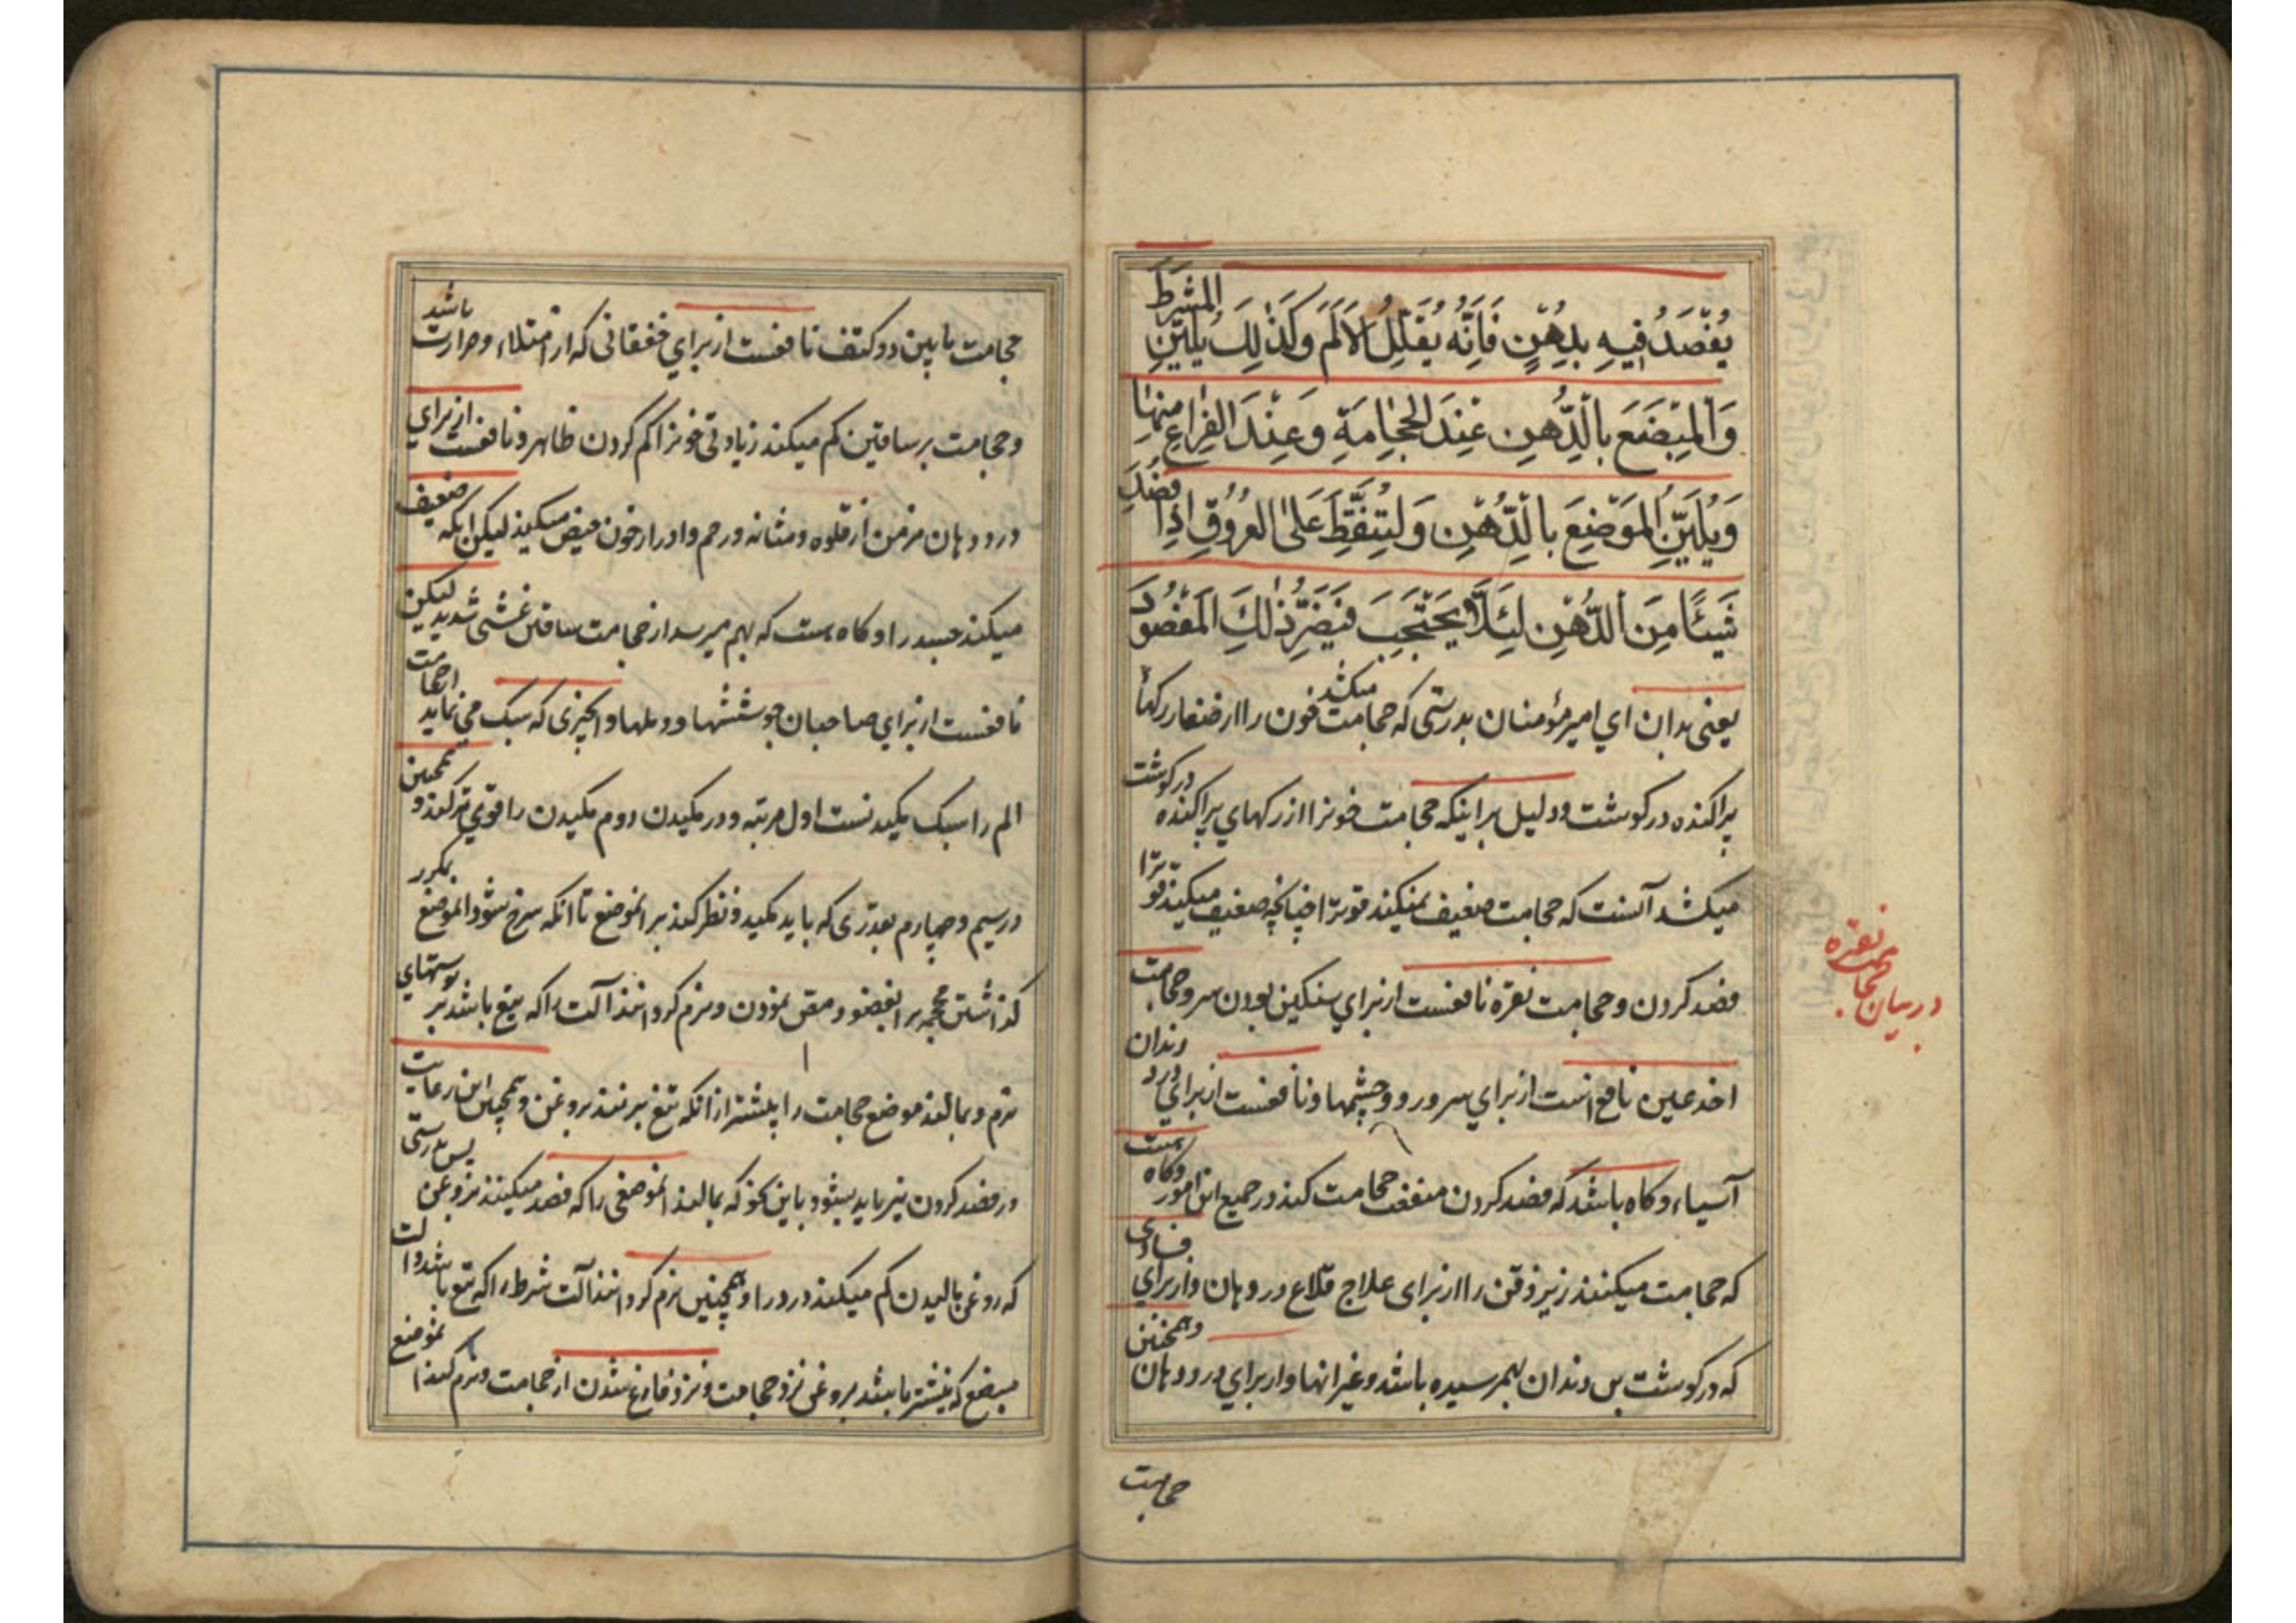 يُفْصَدُ فِيهِ بِدُهْنٍ فَاِنَّهُ يُقَلِّلُ الاَلَمَ وَكَذٰلِكَ يُلَيِّنُ المشرَطَ
وَالْمِبْضَعَ بِالدُّهْنِ عِنْدَ الحِجَامَةِ وَعِنْدَ الفِرَاغِ مِنهَا
وَيُلَيِّنُ المَوْضِعَ بِالدُّهْنِ وَليُنَقِّطَ عَلَىٰ العُرُوقِ اِذَا فصَدَ
شَيئًا مِنَ الدُّهْنِ لِئَلَّا يَحْتَجِبَ فَيَضُرَّ ذٰلِكَ المَفْصُودَ
يعنی بدان ای امیر مؤمنان بدرستی که حجامت میکشد خون را از صغار رکها
پراکنده در کوشت و دلیل بر اینکه حجامت خونرا از رکهای پراکنده در کوشت
میکشد آنست که حجامت ضعیف نمیکند قوترا چنانچه ضعیف میکیند قوترا
فصد کردن و حجامت نقره نافعست از برای سنکین بودن سر و حجامت
اخدعین نافع است از برای سر و رو و چشمها و نافعست از برای درد دندان
آسیاء و کاه باشد که فصد کردن منفعت حجامت کند در جمیع این امور و کاه هست
که حجامت میکنند زیر ذقن را از برای علاج قلاع در دهان و از برای فسادی
که در کوشت بن دندان بهمرسیده باشد و غیر انها و از برای درد دهان و همچنین
در بیان حجامت نقره
حجامت
حجامت مابین دو کتف نافعست از برای خفقانی که از امتلاء و حرارت باشد
و حجامت بر ساقین کم میکند زیادتی خونرا کم کردن ظاهر و نافعست از برای
دردهای مزمن از قلوه و مثانه و رحم و ادرار خون حیض میکیند لیکن اینکه ضعیف
میکند جسد را و کاه هست که بهم میرسد از حجامت ساقین غشی شدید لیکن
نافعست از برای صاحبان جوششها و دملها و انچیزی که سبک می نماید از حجامت
الم را سبک مکیدنست اول مرتبه و در مکیدن دوم مکیدن را قوی تر کند و همچنین
در سیم و چهارم بقدری که باید مکید و نظر کند بر انموضع تا انکه سرخ شود انموضع بمکرر
کذاشتن محجمه بر انعضو و مص نمودن و نرم کردانند آلت را که تیغ باشد بر پوستهای
نرم و بمالند موضع حجامت را پیشتر از انکه تیغ بزنند بروغن و همچنین این رعایت
در فصد کردن نیز باید بشود باین نحو که بمالند انموضعی را که فصد میکینند بروغن پس بدرستی
که روغن مالیدن کم میکند درد را و همچنین نرم کردانند آلت شرط را که تیغ باشد و الت
مبضع که نیشتر باشد بروغن نزد حجامت و نزد فارغ شدن از حجامت و نرم کند انموضع